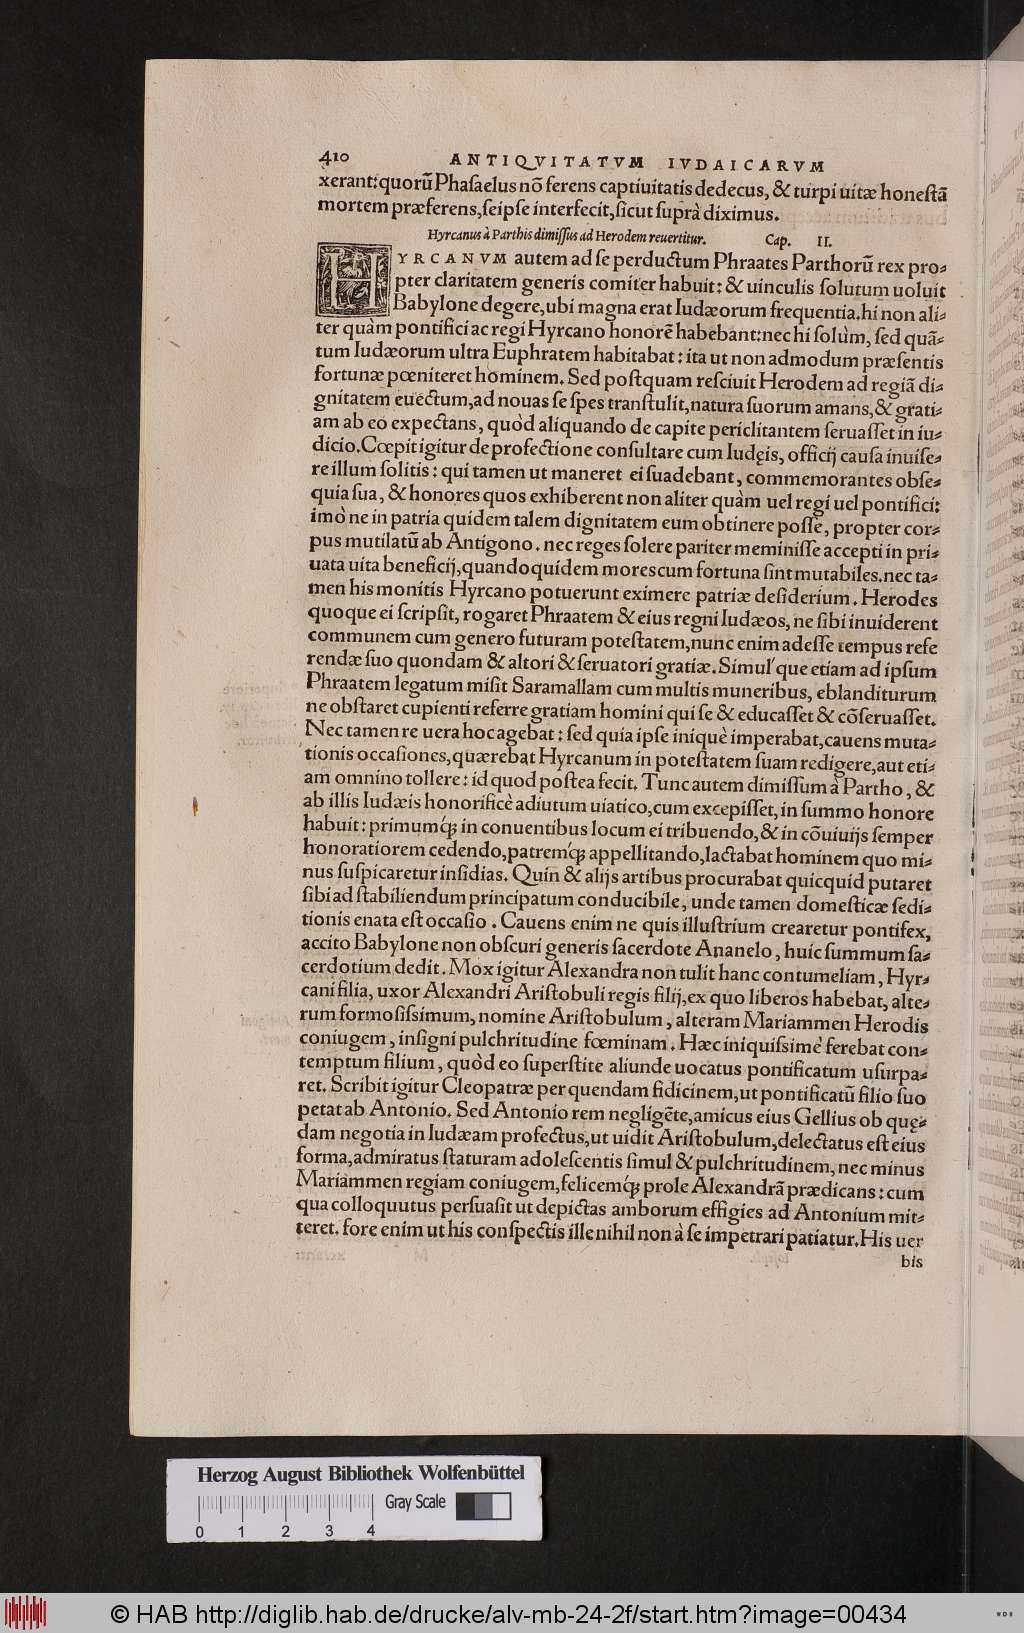 410 ANTIQVITATVM IVDAICARVM
xerant: quorũ Phaſaelus nõ ferens captiuitatis dedecus, & turpi uitæ honeſtã
mortem præferens, ſeipſe interfecit, ſicut ſuprà diximus.
Hyrcanus à Parthis dimiſſus ad Herodem reuertitur. Cap. II.
HYRCANVM autem ad ſe perductum Phraates Parthorũ rex pro-
pter claritatem generis comiter habuit: & uinculis ſolutum uoluit
Babylone degere, ubi magna erat Iudæorum frequentia. hi non ali-
ter quàm pontifici ac regi Hyrcano honorẽ habebant: nec hi ſolùm, ſed quã-
tum Iudæorum ultra Euphratem habitabat: ita ut non admodum præſentis
fortunæ pœniteret hominem. Sed poſtquam reſciuit Herodem ad regiã di-
gnitatem euectum, ad nouas ſe ſpes tranſtulit, natura ſuorum amans, & grati-
am ab eo expectans, quòd aliquando de capite periclitantem ſeruaſſet in iu-
dicio. Cœpit igitur de profectione conſultare cum Iudęis, officij cauſa inuiſe-
re illum ſolitis: qui tamen ut maneret ei ſuadebant, commemorantes obſe-
quia ſua, & honores quos exhiberent non aliter quàm uel regi uel pontifici:
imò ne in patria quidem talem dignitatem eum obtinere poſſe, propter cor-
pus mutilatũ ab Antigono. nec reges ſolere pariter meminiſſe accepti in pri-
uata uita beneficij, quandoquidem mores cum fortuna ſint mutabiles. nec ta-
men his monitis Hyrcano potuerunt eximere patriæ deſiderium. Herodes
quoque ei ſcripſit, rogaret Phraatem & eius regni Iudæos, ne ſibi inuiderent
communem cum genero futuram poteſtatem, nunc enim adeſſe tempus refe
rendæ ſuo quondam & altori & ſeruatori gratiæ. Simul'que etiam ad ipſum
Phraatem legatum miſit Saramallam cum multis muneribus, eblanditurum
ne obſtaret cupienti referre gratiam homini qui ſe & educaſſet & cõſeruaſſet.
Nec tamen re uera hoc agebat: ſed quia ipſe iniquè imperabat, cauens muta-
tionis occaſiones, quærebat Hyrcanum in poteſtatem ſuam redigere, aut eti-
am omnino tollere: id quod poſtea fecit. Tunc autem dimiſſum à Partho, &
ab illis Iudæis honorificè adiutum uiatico, cum excepiſſet, in ſummo honore
habuit: primumq́; in conuentibus locum ei tribuendo, & in cõuiuijs ſemper
honoratiorem cedendo, patremq́; appellitando, lactabat hominem quo mi-
nus ſuſpicaretur inſidias. Quin & alijs artibus procurabat quicquid putaret
ſibi ad ſtabiliendum principatum conducibile, unde tamen domeſticæ ſedi-
tionis enata eſt occaſio. Cauens enim ne quis illuſtrium crearetur pontifex,
accito Babylone non obſcuri generis ſacerdote Ananelo, huic ſummum ſa-
cerdotium dedit. Mox igitur Alexandra non tulit hanc contumeliam, Hyr-
cani filia, uxor Alexandri Ariſtobuli regis filij, ex quo liberos habebat, alte-
rum formoſiſsimum, nomine Ariſtobulum, alteram Mariammen Herodis
coniugem, inſigni pulchritudine fœminam. Hæc iniquiſsimè ferebat con-
temptum filium, quòd eo ſuperſtite aliunde uocatus pontificatum uſurpa-
ret. Scribit igitur Cleopatræ per quendam fidicinem, ut pontificatũ filio ſuo
petat ab Antonio. Sed Antonio rem negligẽte, amicus eius Gellius ob quę-
dam negotia in Iudæam profectus, ut uidit Ariſtobulum, delectatus eſt eius
forma, admiratus ſtaturam adoleſcentis ſimul & pulchritudinem, nec minus
Mariammen regiam coniugem, felicemq́; prole Alexandrã prædicans: cum
qua colloquutus perſuaſit ut depictas amborum effigies ad Antonium mit-
teret. fore enim ut his conſpectis ille nihil non à ſe impetrari patiatur. His uer
bis
Herzog August Bibliothek Wolfenbüttel
Gray Scale
0 1 2 3 4
© HAB http://diglib.hab.de/drucke/alv-mb-24-2f/start.htm?image=00434